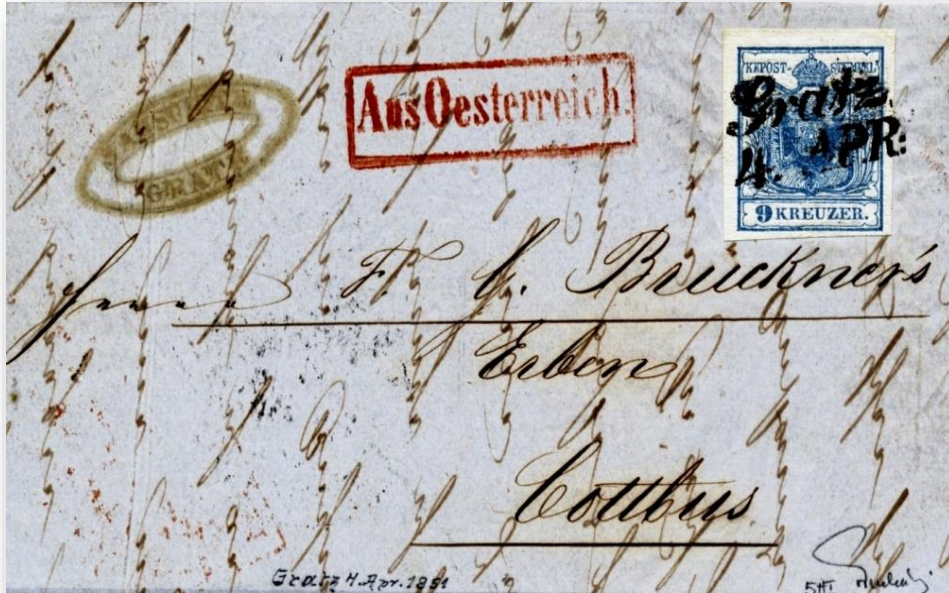 GRATZ
Aus Oesterreich.
KKPOST-STEMPEL
Gratz.
4. APR:
9 KREUZER.
Herrn F. G. Bruckner's
Erben
Cottbus
Gratz 4. Apr. 1851